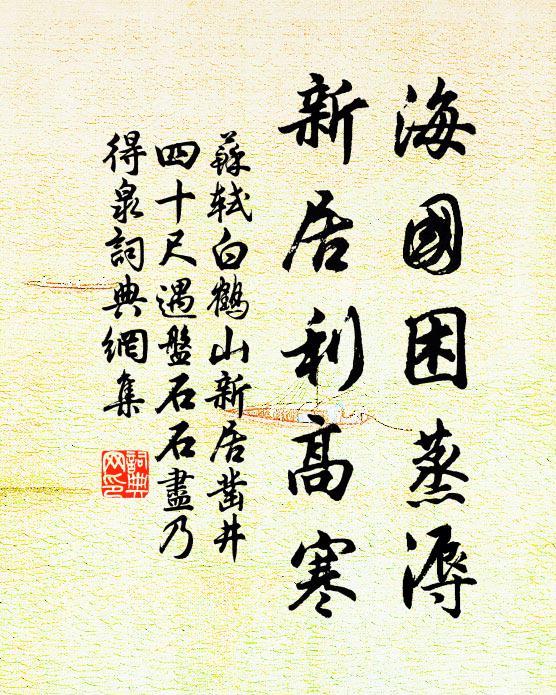 海國困蒸溽
新居利高寒
蘇軾白鶴山新居鑿井
四十尺遇盤石石盡乃
得泉詞典網集
詞典
网印